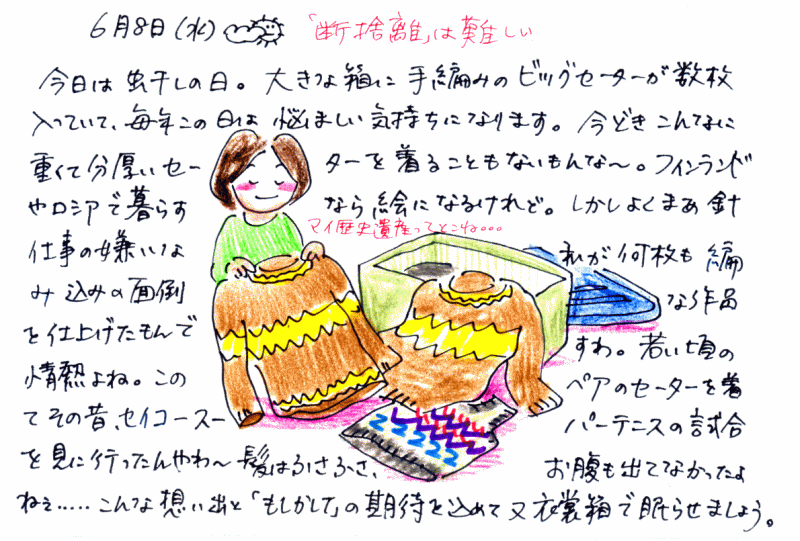 6月8日(水) 「断捨離」は難しい
今日は虫干しの日。大きな箱に手編みのビッグセーターが数枚
入っていて、毎年この日は悩ましい気持ちになります。今どきこんなに
重くて分厚いセーターを着ることもないもんな〜。フィンランド
やロシアで暮らすなら絵になるけれど。しかしよくまあ針
マイ歴史遺産ってとこね...
仕事の嫌いな私が何枚も編
み込みの面倒な作品
を仕上げたもんですわ。若い頃の
情熱よね。このペアのセーターを着
てその昔、セイコースーパーテニスの試合
を見に行ったんやわ〜髪はふさふさ、お腹も出てなかったよ
ねぇ.....こんな想い出と「もしかして」の期待を込めて又衣裳箱で眠らせましょう。